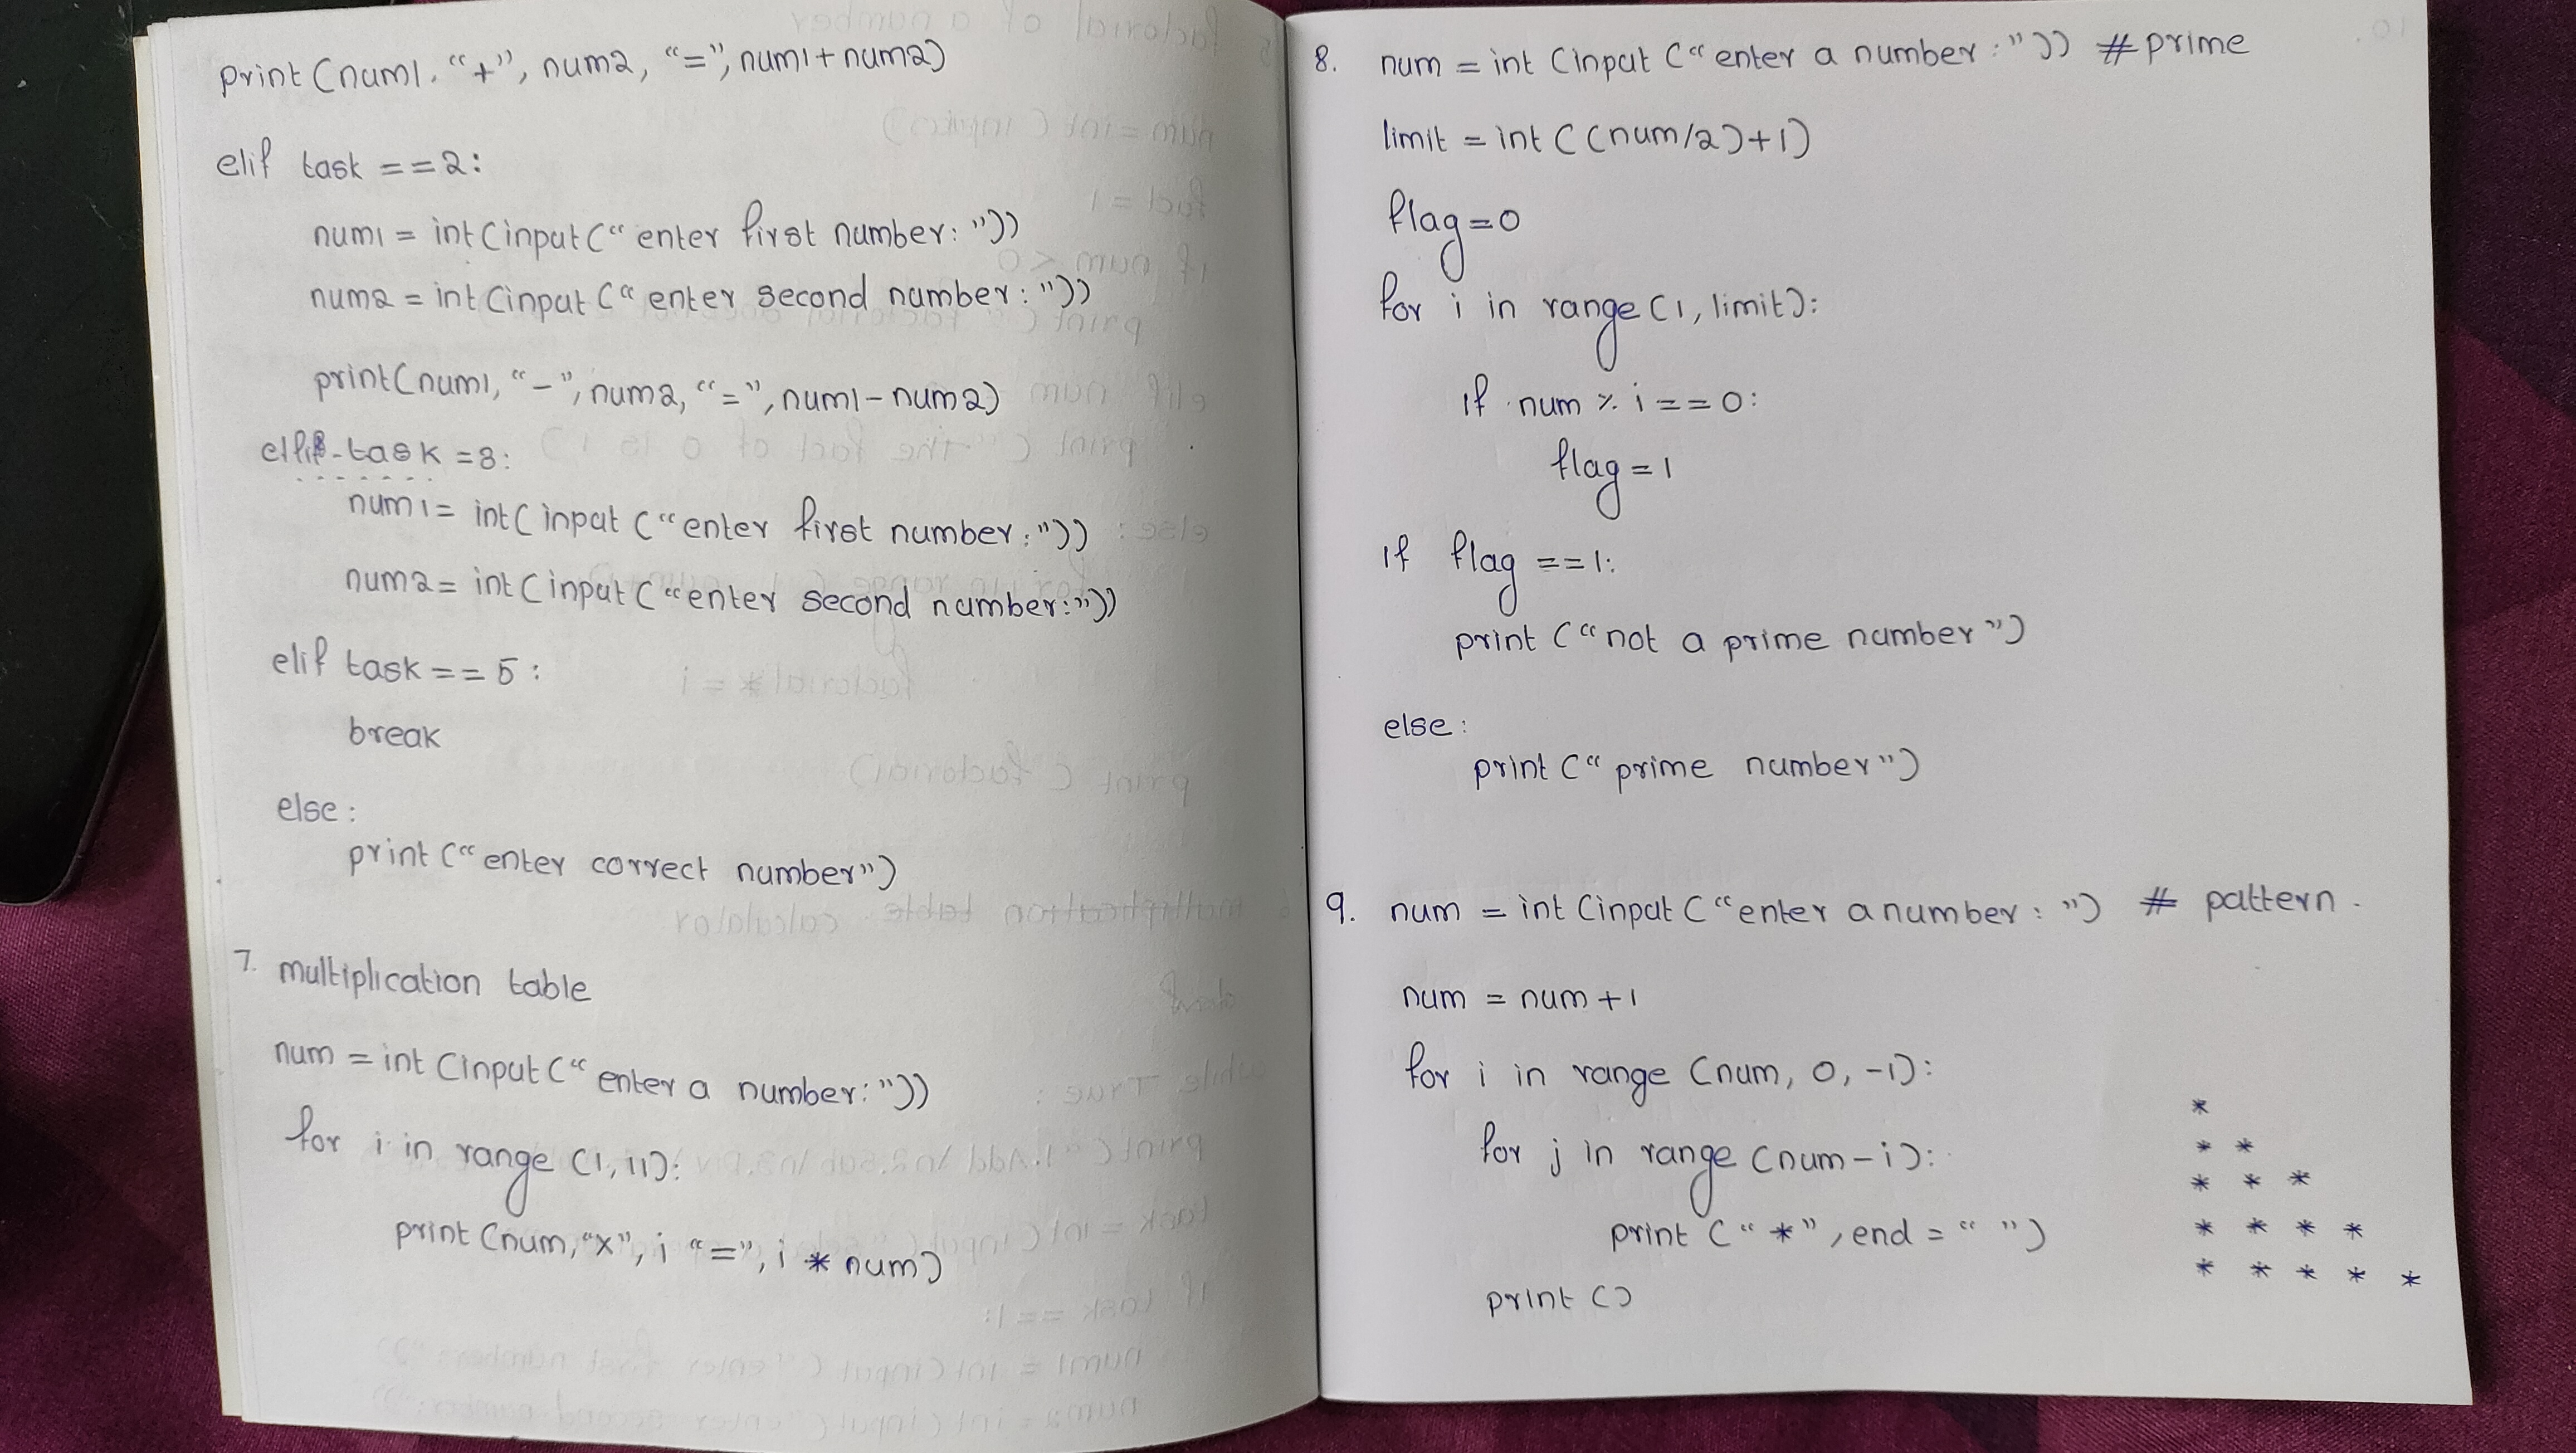 print(num1, "+", num2, "=", num1+num2)
elif task ==2:
num1 = int(input("enter first number: "))
num2 = int(input("enter second number: "))
print(num1, "-", num2, "=", num1-num2)
elif task =3:
num1= int(input("enter first number: "))
num2= int(input("enter second number:"))
elif task == 5 :
break
else :
print("enter correct number")
7. multiplication table
num = int(input("enter a number: "))
for i in range (1,11):
print(num,"x", i "=", i * num)
8. num = int(input("enter a number: ")) # prime
limit = int((num/2)+1)
flag=0
for i in range(1, limit):
if num % i == 0:
flag = 1
if flag ==1:
print("not a prime number")
else :
print("prime number")
9. num = int(input("enter a number : ") # pattern.
num = num+1
for i in range (num, 0, -1):
for j in range (num-i):
print("*", end = " ")
print()
*
* *
* * *
* * * *
* * * * *